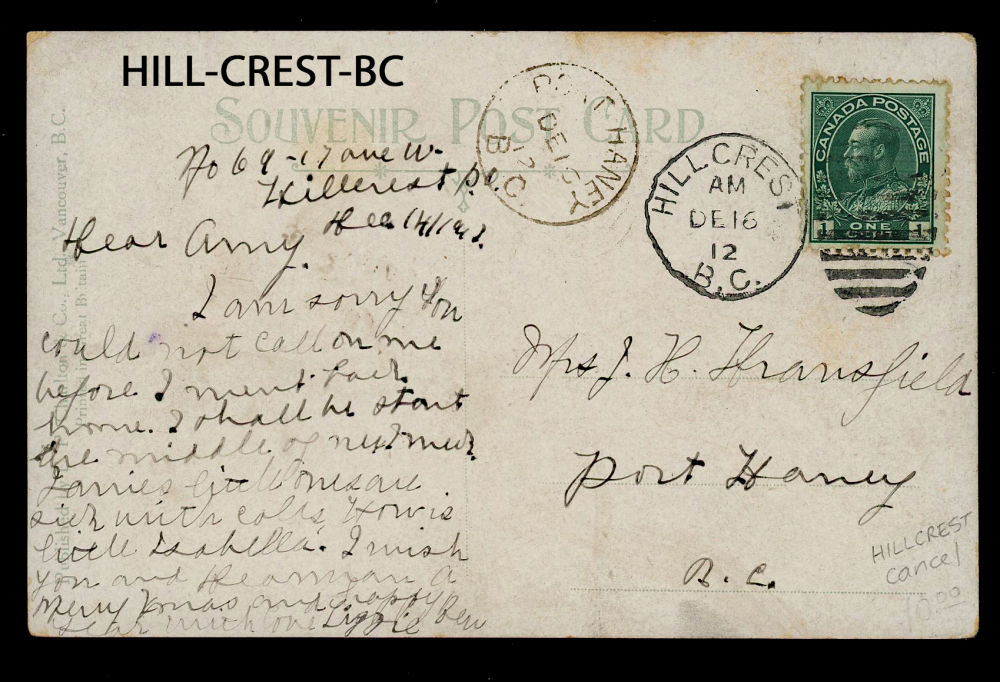 HILL-CREST-BC
SOUVENIR POST CARD
PORT HANEY
DE 16
12
B.C.
HILLCREST
AM
DE 16
12
B.C.
CANADA POSTAGE
1 ONE CENT 1
No 69 - 17 ave W.
Hillcrest P.O.
Dec 14/1912.
Dear Amy.
I am sorry you
could not call on me
before I went back
home. I shall be start
the middle of next week
little ones are
sick with colds, How is
little Isabella. I wish
you and Hearman a
Merry Xmas and happy
year with love Lizzie
Mrs J. H. Hransfield
Port Haney
B.C.
HILLCREST
cancel
10.00
Co., Ltd., Vancouver, B.C.